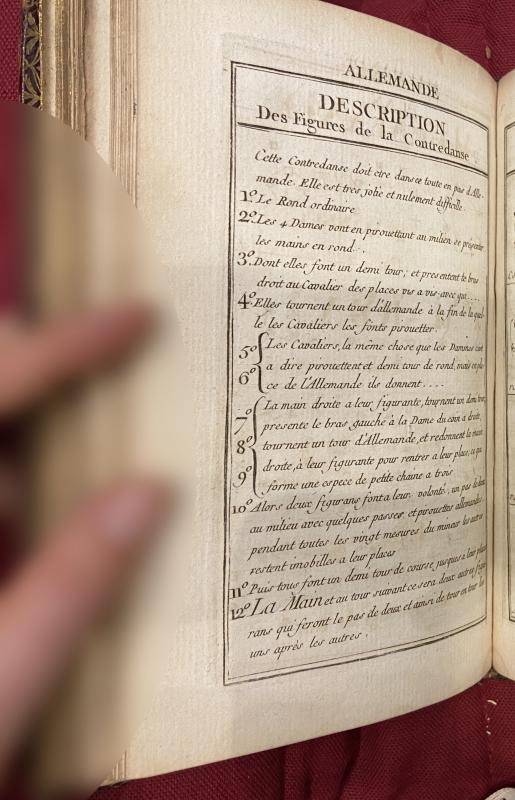 ALLEMANDE
DESCRIPTION
Des Figures de la Contredanse
Cette Contredanse doit etre dansée toute en pas d'Alle-
mande. Elle est tres jolie et nulement difficille.
1º. Le Rond ordinaire
2º. Les 4 Dames vont en pirouettant au milieu se présenter
les mains en rond.
3º. Dont elles font un demi tour; et presentent le bras
droit au Cavalier des places vis a vis avec qui....
4º Elles tournent un tour d'allemande à la fin de la quel-
le les Cavaliers les fonts pirouetter.
5º Les Cavaliers, la même chose que les Dammes c'est
a dire pirouettent et demi tour de rond, mais en pla-
6º ce de L'Allemande ils donnent....
La main droite a leur figurante, tournent un demi tour,
7º presente le bras gauche à la Dame du coin a droite,
8º tournent un tour d'Allemande, et redonnent la main
droite, à leur figurante pour rentrer a leur place, ce qui
9º forme une espece de petite chaine a trois
10º Alors deux figurans font a leur volonté, un pas de deux
au milieu avec quelques passes, et pirouettes allemandes
pendant toutes les vingt mesures du mineur les autres
restent imobilles a leur places
11º Puis tous font un demi tour de course jusques a leur places
12º La Main et au tour suivant ce sera deux autres figu-
rans qui feront le pas de deux et ainsi de tour en tour les
uns après les autres.